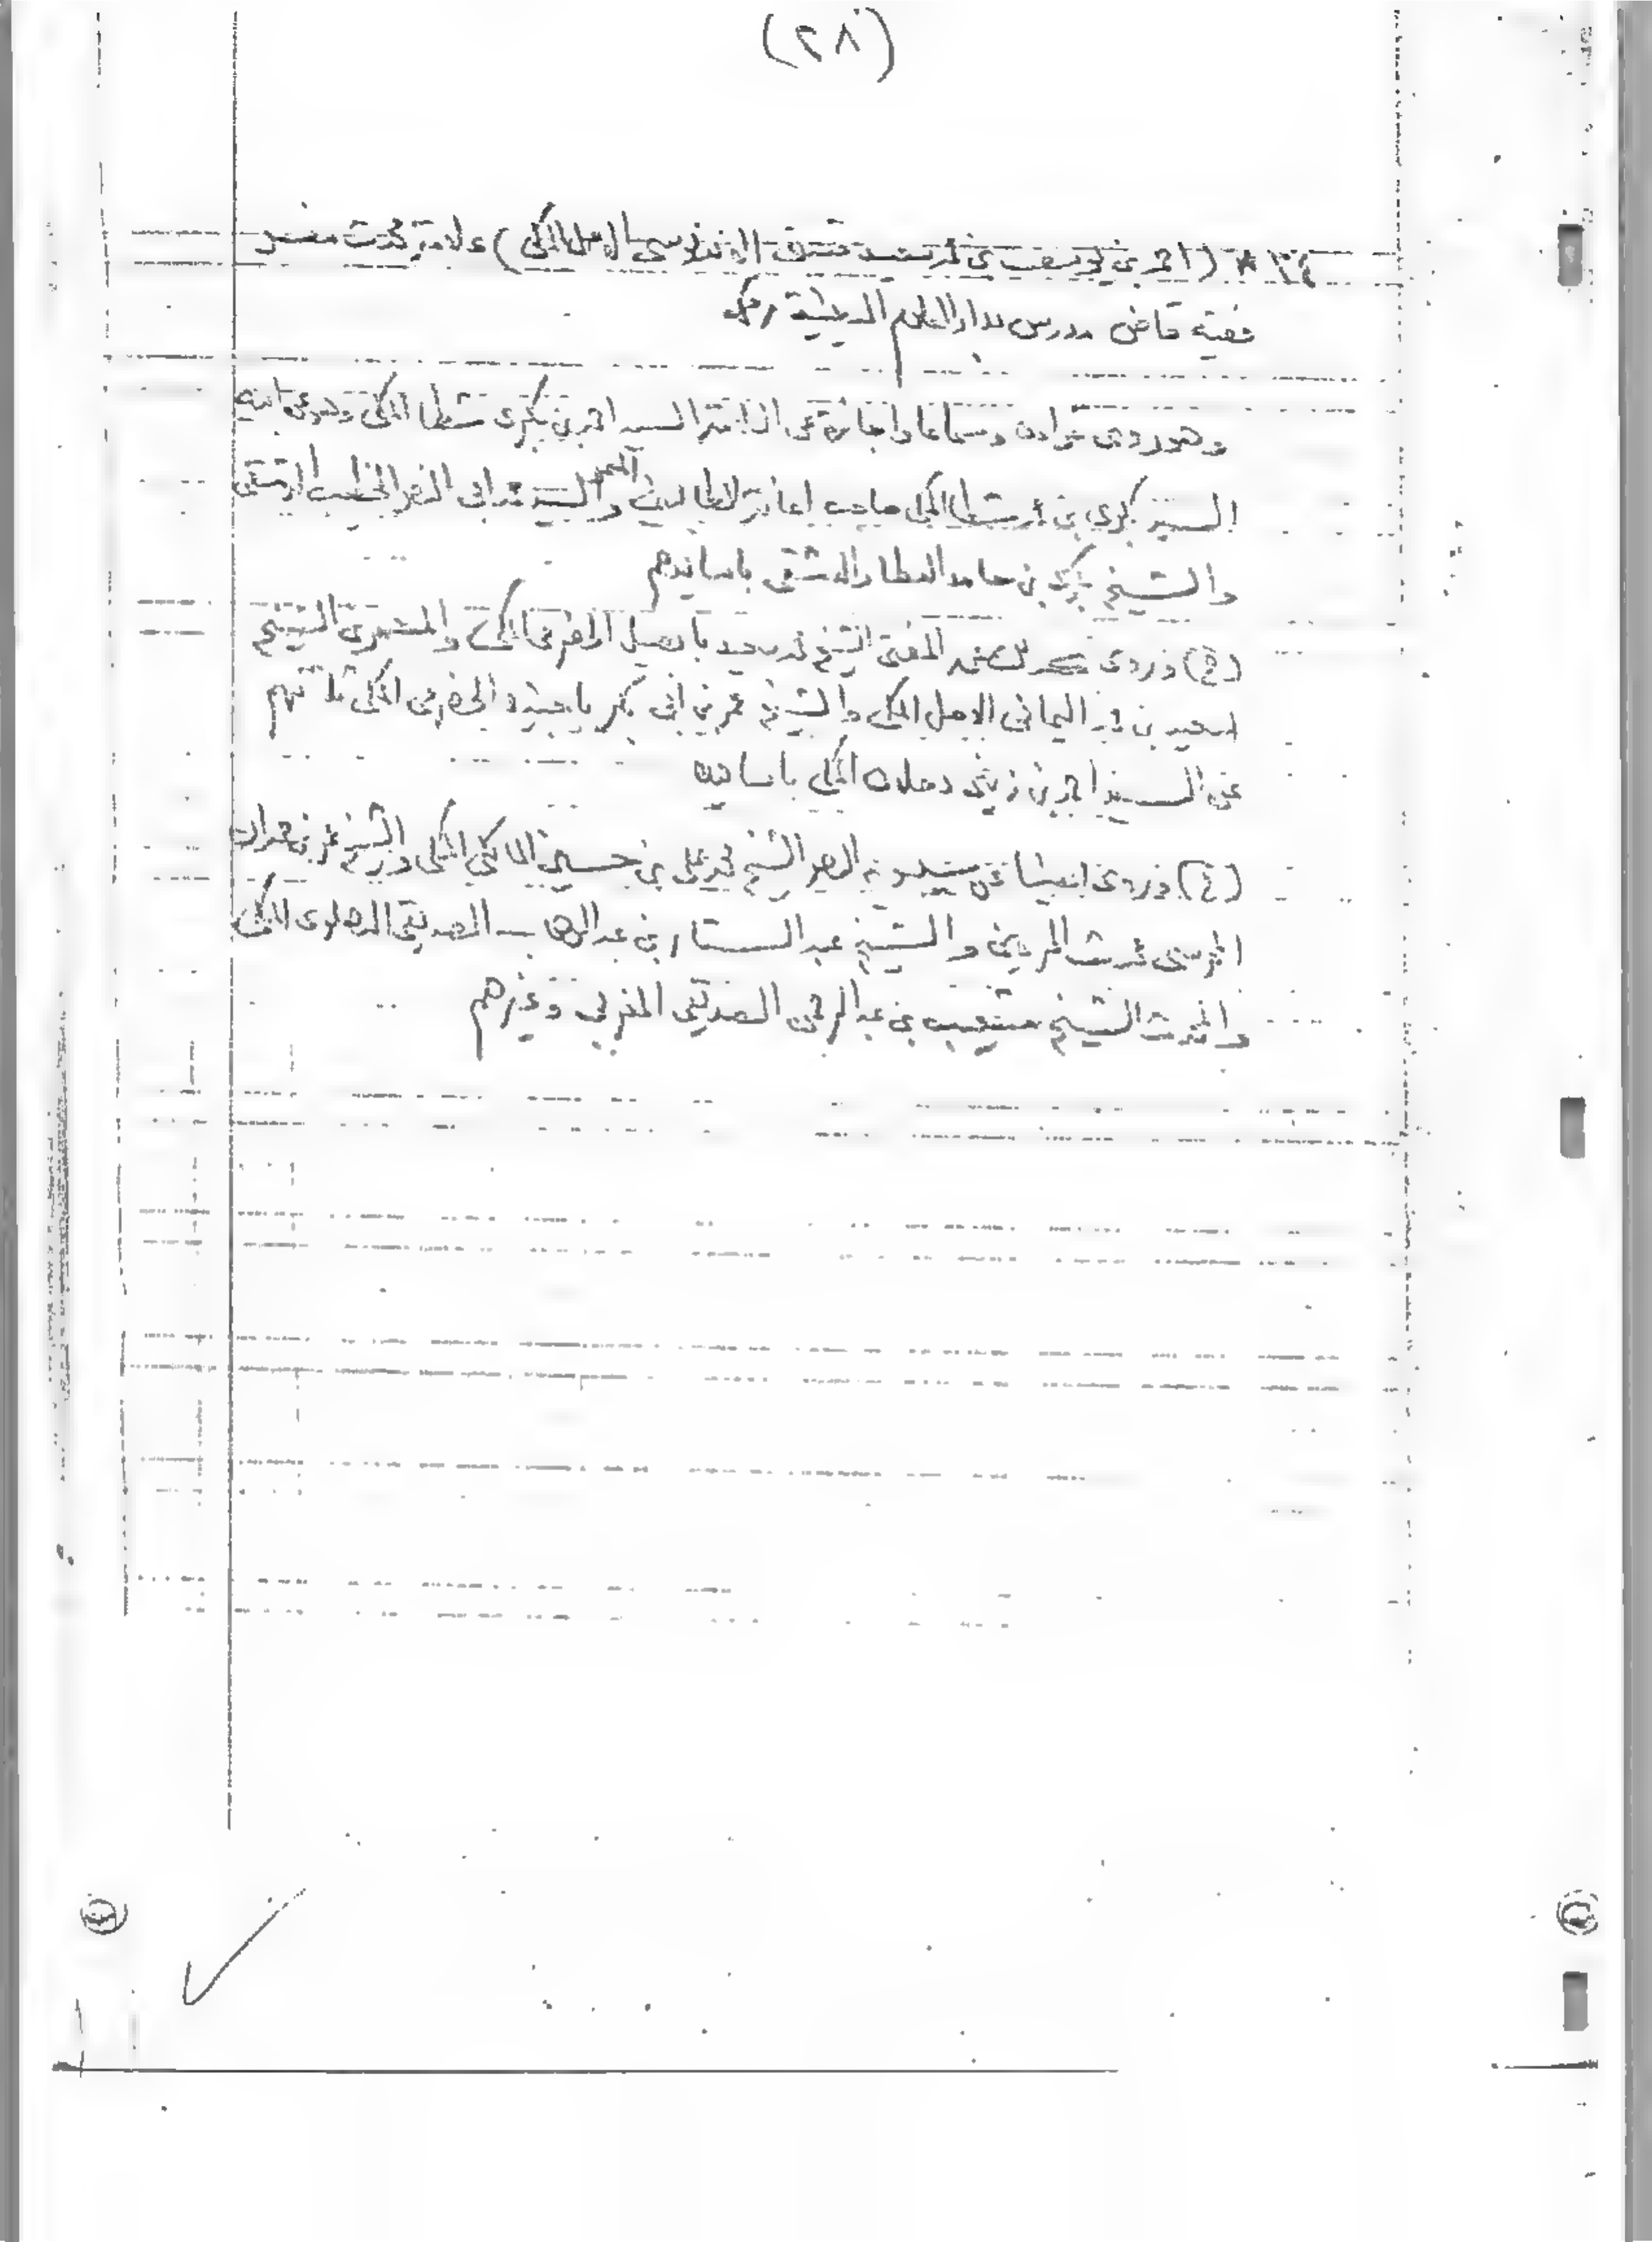 (٢٨)
(احمد بن يوسف بن محمد سعيد قستي الاندونوسى الاصل المكي) علامة محدث مفسر
فقيه قاضى مدرس بدار العلوم الدينية بمكة
وهو روى قراءة وسماعا واجازة عن السيد احمد بن بكرى شطا المكي وهو عن ابيه
السيد بكرى بن محمد شطا المكي صاحب اعانة الطالبين والسيد محمد ابى النصر الخطيب الدمشقى
والشيخ بكرى بن حامد العطار الدمشقى باسانيدهم
(ح) وروى عن المفتى الشيخ محمد سعيد بابصيل الحضرمى المكي والمعمر الشيخ
سعيد بن محمد اليمانى الاصل المكي والشيخ عمر بن ابى بكر باجنيد الحضرمى المكي ثلاثتهم
عن السيد احمد بن زينى دحلان المكي باسانيده
(ح) وروى ايضا عن سيبويه العصر الشيخ محمد على بن حسين المالكي المكي والشيخ عمر بن حمدان
المحرسى محدث الحرمين والشيخ عبد الستار بن عبد الوهاب الصديقى الدهلوى المكي
والمحدث الشيخ شعيب بن عبد الرحمن الصديقى المغربى وغيرهم